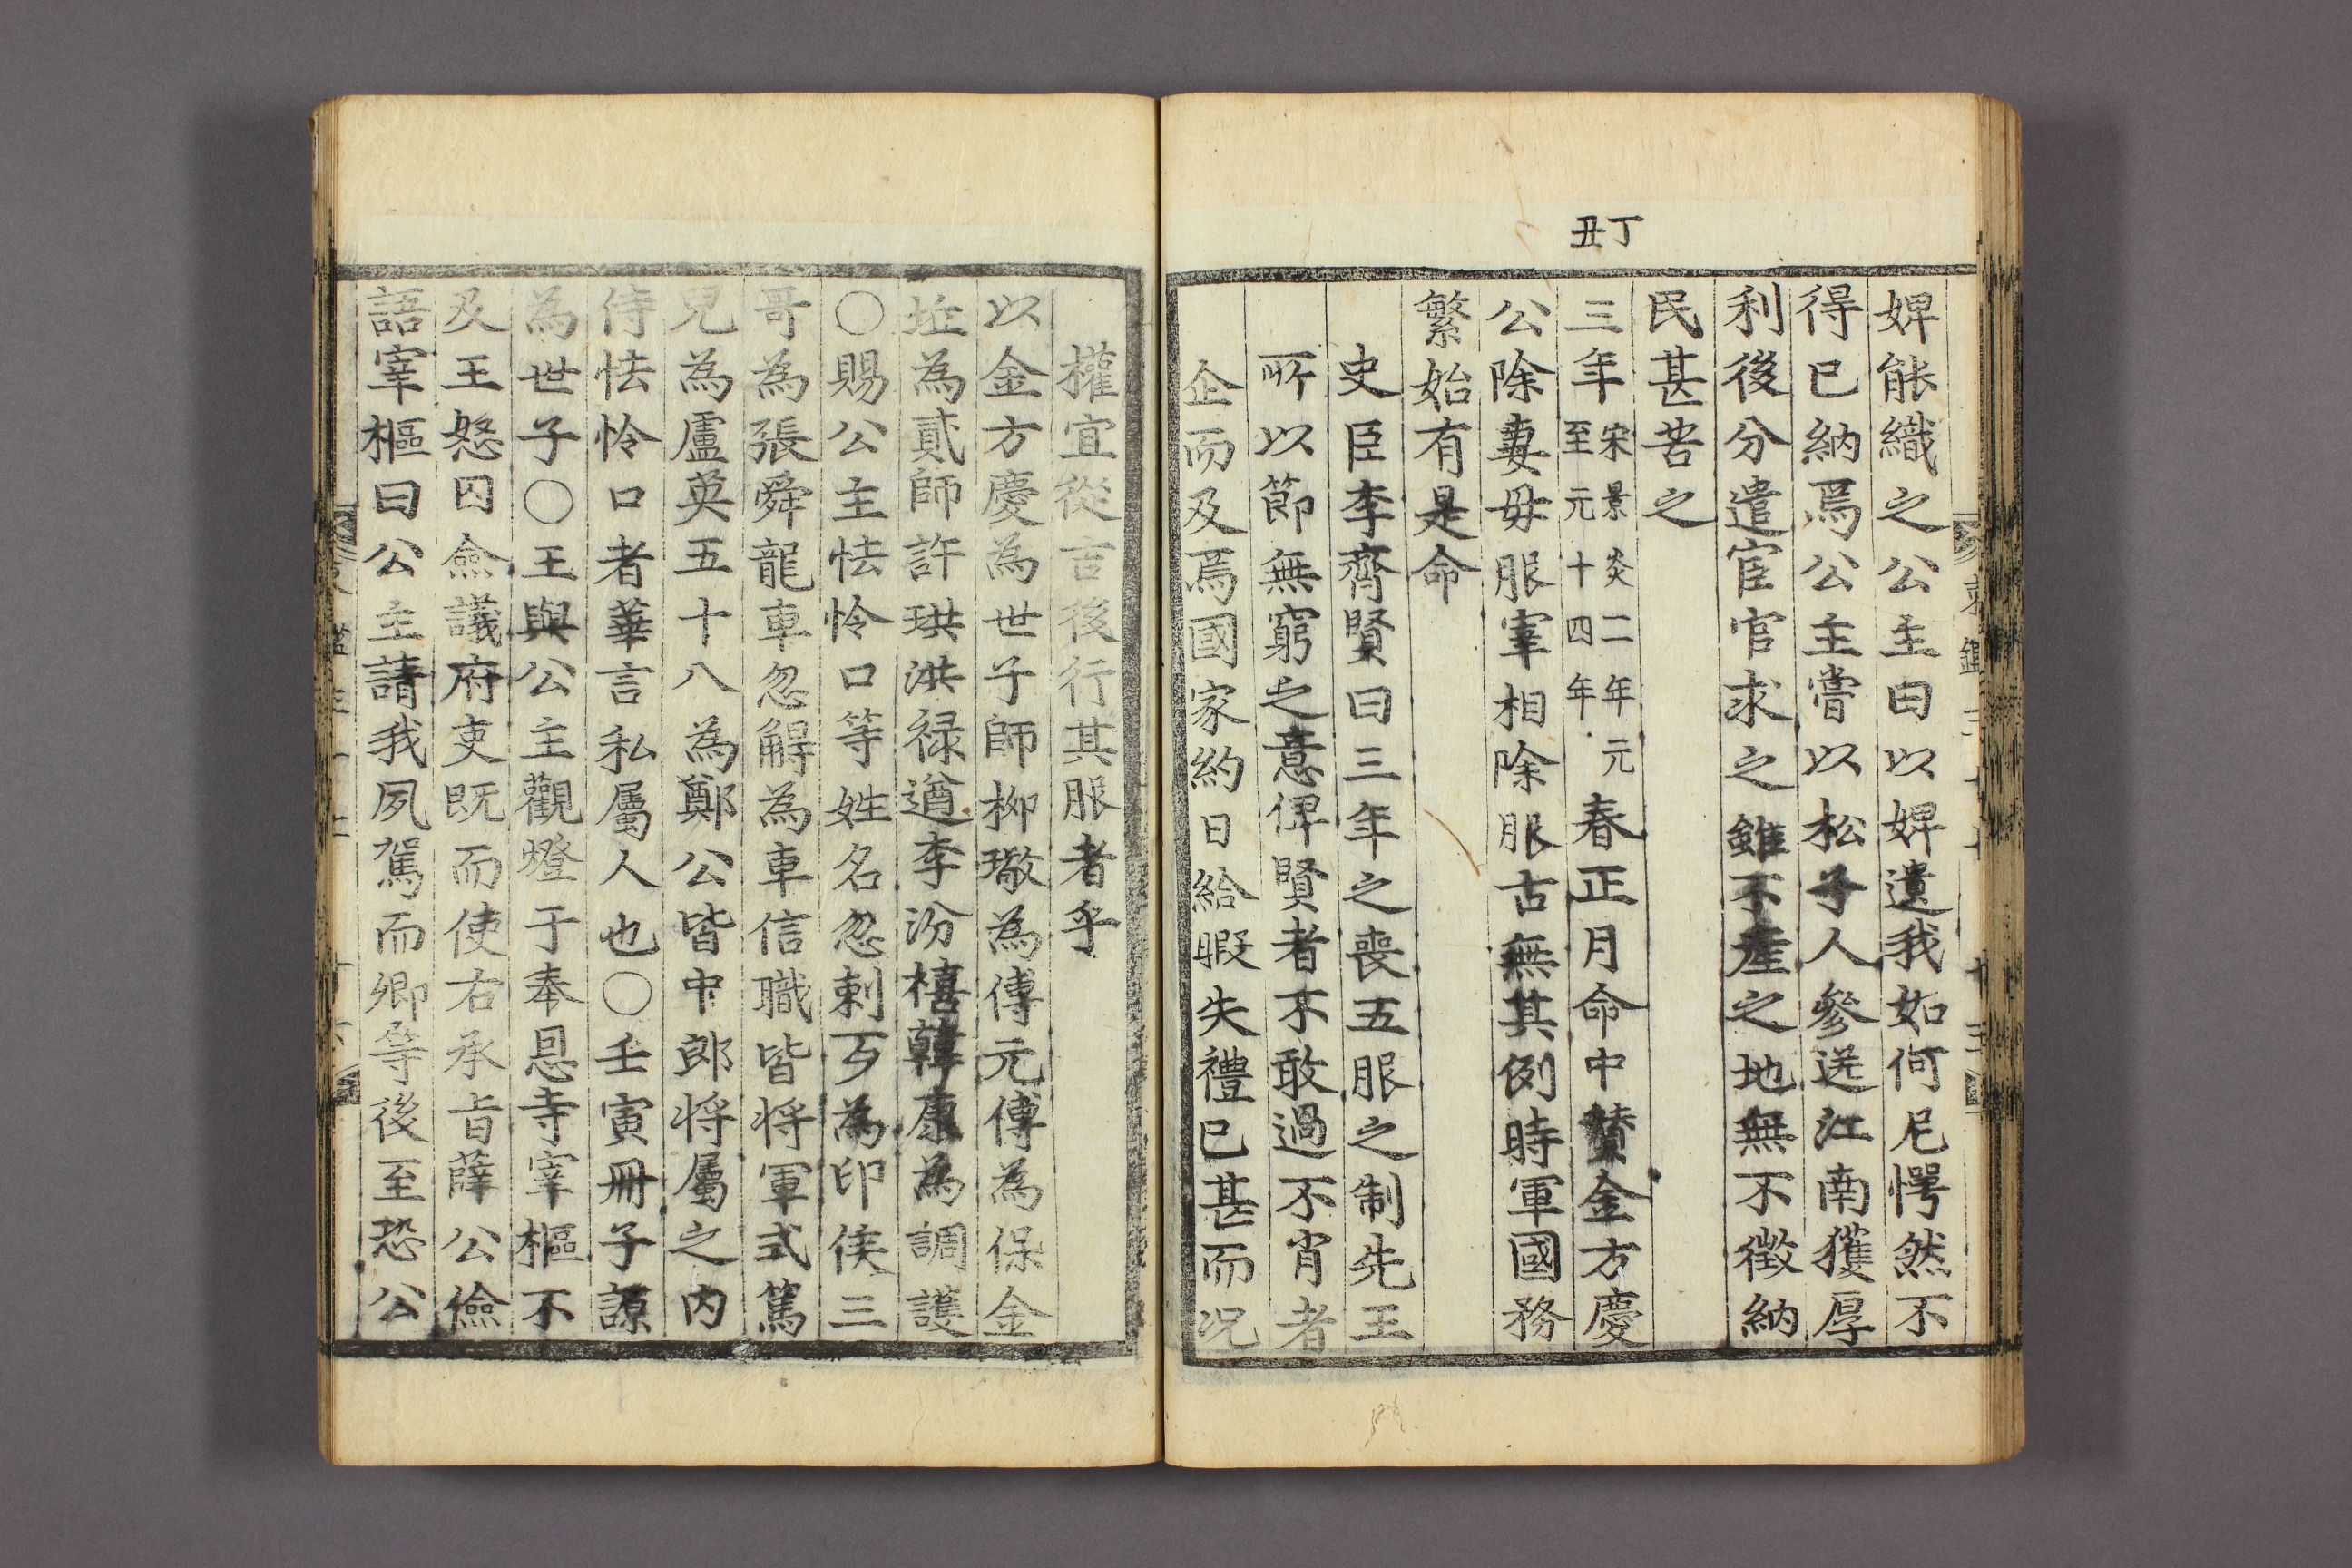 丁丑
婢能織之公主曰以婢遺我如何尼愕然不
得已納焉公主嘗以松子人參送江南獲厚
利後分遣宦官求之雖不產之地無不徵納
民甚苦之
三年宋景炎二年元至元十四年春正月命中贊金方慶
公除妻母服宰相除服古無其例時軍國務
繁始有是命
史臣李齊賢曰三年之喪五服之制先王
所以節無窮之意俾賢者不敢過不肖者
企而及焉國家約日給暇失禮已甚而況
權宜從吉後行其服者乎
以金方慶為世子師柳璥為傅元傅為保金
坵為貳師許珙洪祿遒李汾禧韓康為調護
○賜公主怯怜口等姓名忽剌歹為印侯三
哥為張舜龍車忽䚟為車信職皆將軍式篤
兒為盧英五十八為鄭公皆中郎將屬之內
侍怯怜口者華言私屬人也○壬寅冊子謜
為世子○王與公主觀燈于奉恩寺宰樞不
及王怒囚僉議府吏既而使右承旨薛公儉
語宰樞曰公主請我夙駕而卿等後至恐公